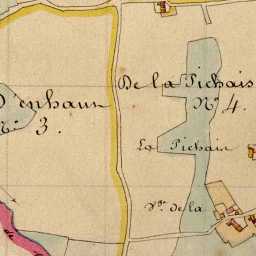 D'enhaut
N.° 3.
De la Pichais
N.° 4.
La Pichais
de la